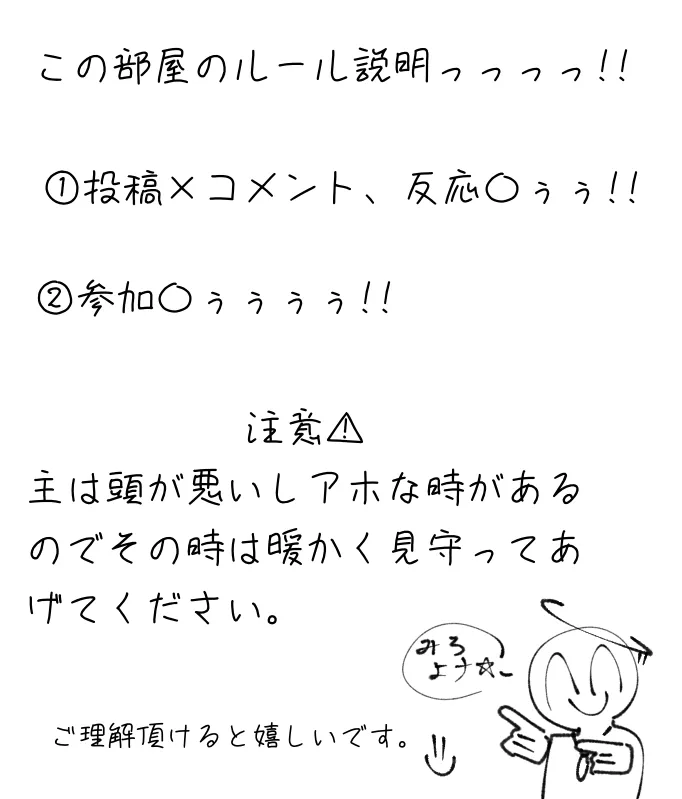 この部屋のルール説明っっっっ!!
①投稿×コメント、反応○ぅぅ!!
②参加○ぅぅぅぅ!!
注意⚠
主は頭が悪いしアホな時がある
のでその時は暖かく見守ってあ
げてください。
みろ
よナ☆
ご理解頂けると嬉しいです。